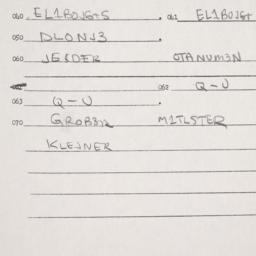 040 EL1BOJGTS . 041 EL1BOJGT
050 DLONJ3 .
060 JEIDER OTANUM3N
062 Q-U
063 Q-U .
070 GROB312 M1TLSTER
KLEJNER